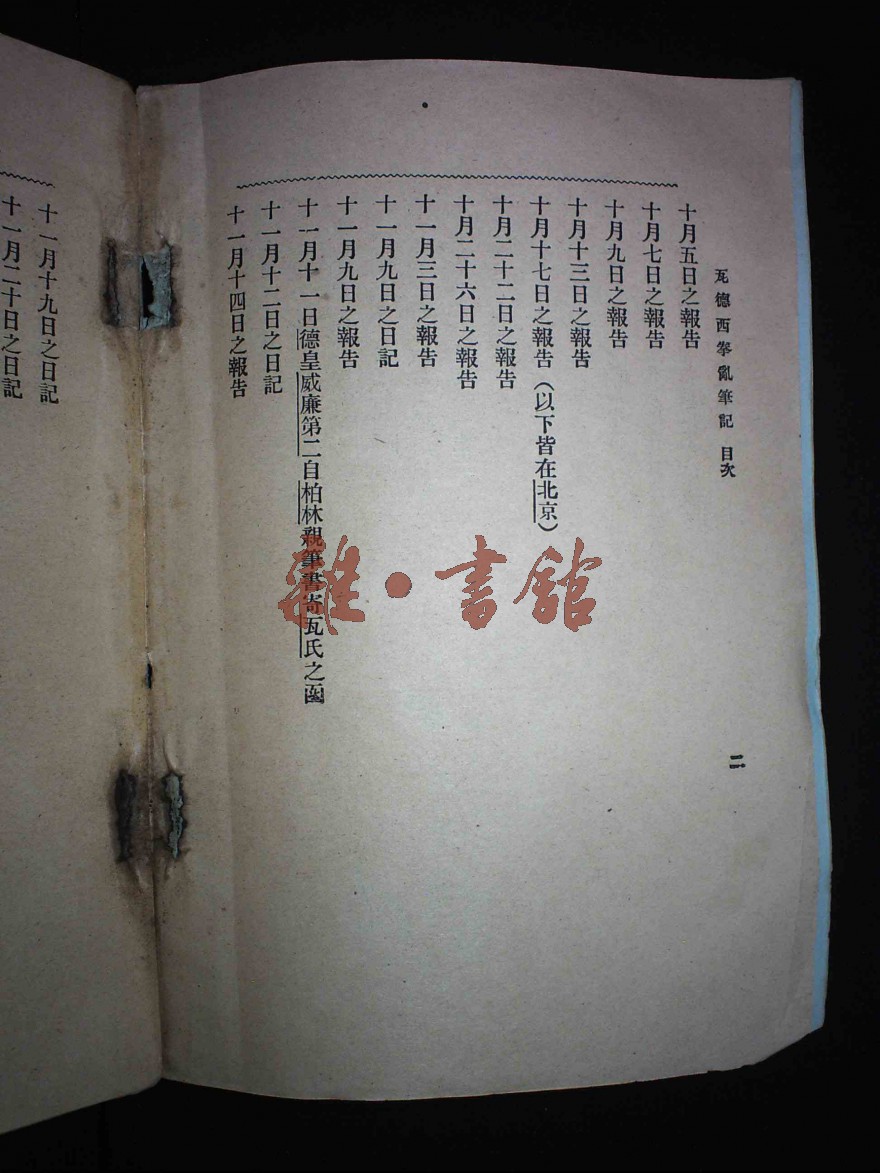 瓦德西拳亂筆記 目次
二
十月五日之報告
十月七日之報告
十月九日之報告
十月十三日之報告
十月十七日之報告（以下皆在北京）
十月二十二日之報告
十月二十六日之報告
十一月三日之報告
十一月九日之日記
十一月九日之報告
十一月十一日德皇威廉第二自柏林親筆書寄瓦氏之函
十一月十二日之日記
十一月十四日之報告
十一月十九日之日記
十一月二十日之日記
雜·書館